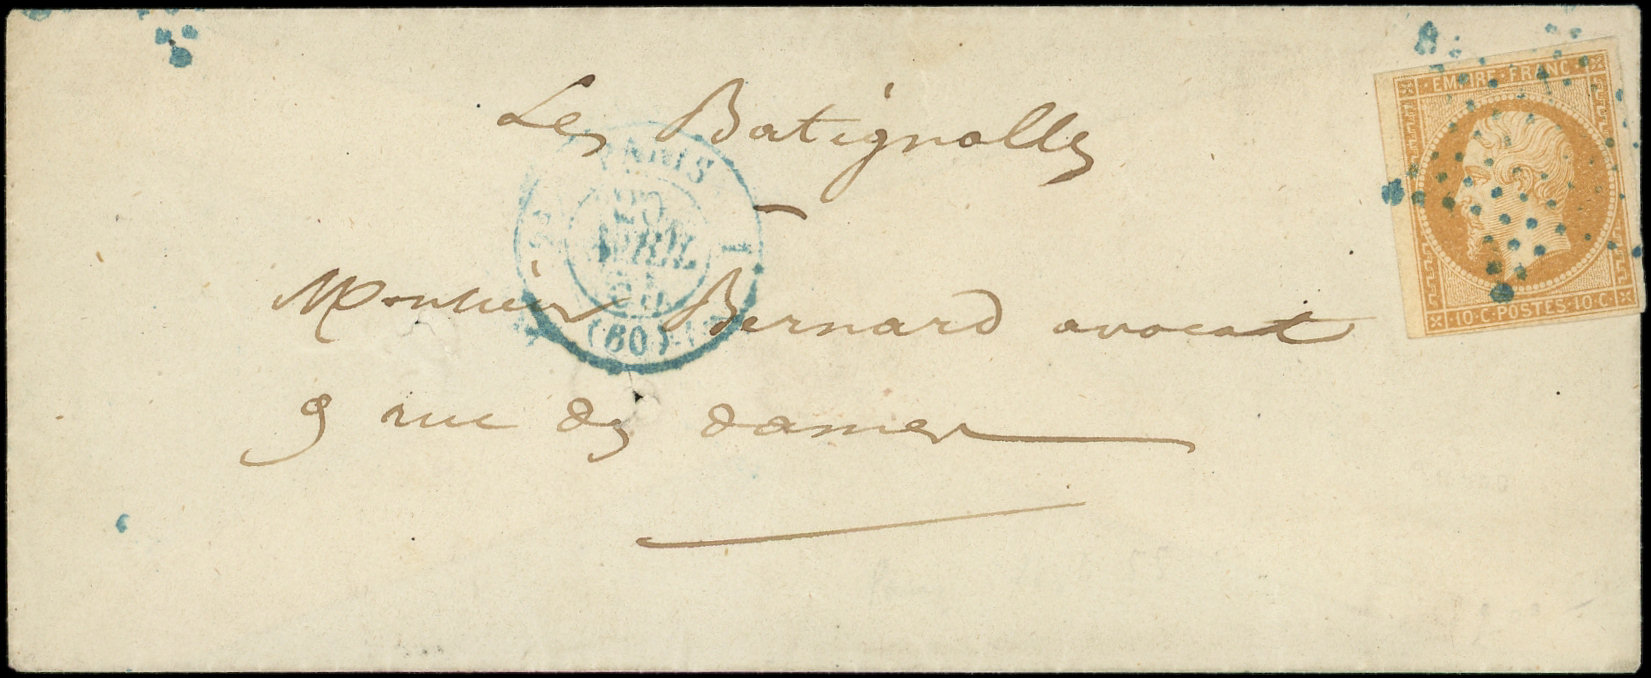 Les Batignolles
EMPIRE · FRANC ·
PARIS
25
AVRIL
(60)
· 10 · C · POSTES · 10 · C ·
Monsieur Bernard avocat
9 rue des dames